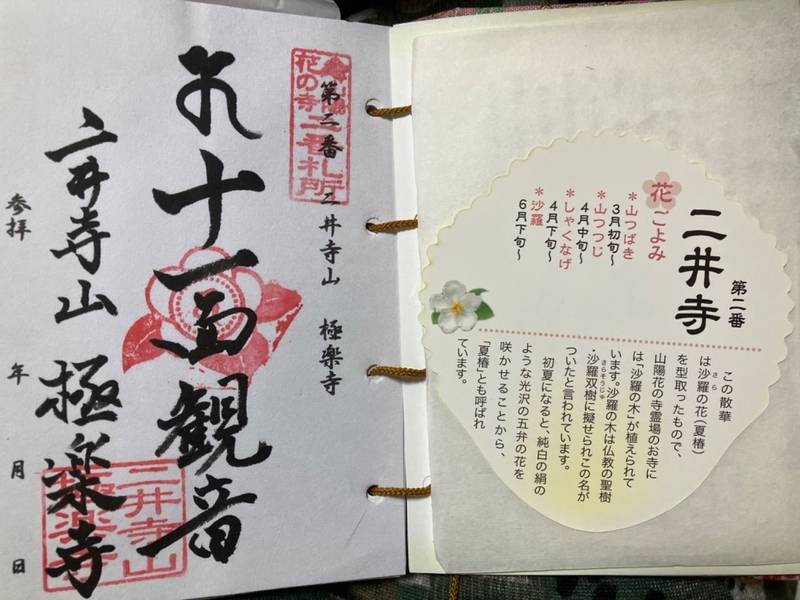 第二番
二井寺
花ごよみ
*山つばき
3月初旬〜
*山つつじ
4月中旬〜
*しゃくなげ
4月下旬〜
*沙羅
6月下旬〜
この散華
さら
は沙羅の花(夏椿)
を型取ったもので、
山陽花の寺霊場のお寺に
は「沙羅の木」が植えられて
います。沙羅の木は仏教の聖樹
さらそうじゅ
・沙羅双樹に擬せられこの名が
ついたと言われています。
初夏になると、純白の絹の
ような光沢の五弁の花を
咲かせることから、
「夏椿」とも呼ばれ
ています。
第二番 二井寺山 極楽寺
山陽
花の寺
二番札所
十一面観音
二井寺山 極楽寺
二井寺山
極楽寺
参拝 年 月 日